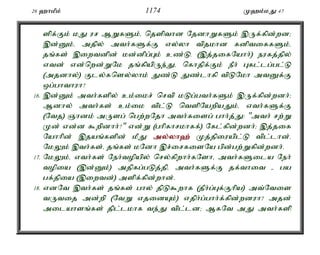 26 ஹாமீம் 1174 முஹம்மது 47
ளிக்கும் மது ரச ஆறுகளும், தெளிவான தேனாறுகளும் இருக்கின்றன;
இன்னும், அதில் அவர்களுக்கு எல்லா விதமான கனிவகைகளும்,
தங்கள் இறைவனின் மன்னிப்பும் உண்டு. (இத்தகையோர்) நரகத்தில்
எவன் என்றென்றுமே தங்கியிருந்து, கொதிக்கும் நீர் புகட்டப்பட்டு
(அதனால்) குடல்களெல்லாம் துண்டு துண்டாகி விடுமோ அவனுக்கு
ஒப்பாவாரா?
16. இன்னும் அவர்களில் உம்மைச் செவி மடுப்பவர்களும் இருக்கின்றனர்;
ஆனால் அவர்கள் உம்மை விட்டு வெளியேறியதும், எவர்களுக்கு
(வேத) ஞானம் அருளப் பெற்றதோ அவர்களைப் பார்த்து "அவர் சற்று
முன் என்ன கூறினார்?" என்று (பரிகாசமாகக்) கேட்கின்றனர்; இத்தகை
யோரின் இதயங்களின் மீது அல்லாஹ் முத்திரையிட்டு விட்டான்.
மேலும் இவர்கள், தங்கள் மனோ இச்சைகளையே பின்பற்றுகின்றனர்.
17. மேலும், எவர்கள் நேர்வழியில் செல்கிறார்களோ, அவர்களுடைய நேர்
வழியை (இன்னும்) அதிகப்படுத்தி, அவர்களுக்கு தக்வாவை - பய
பக்தியை (இறைவன்) அளிக்கின்றான்.
18. எனவே இவர்கள் தங்கள் பால் திடுகூறாக (தீர்ப்புக்குரிய) அவ்வேளை
வருவதை அன்றி (வேறு எதனையும்) எதிர்ப்பார்க்கின்றனரா? அதன்
அடையாளங்கள் திட்டமாக வந்து விட்டன; ஆகவே அது அவர்களி